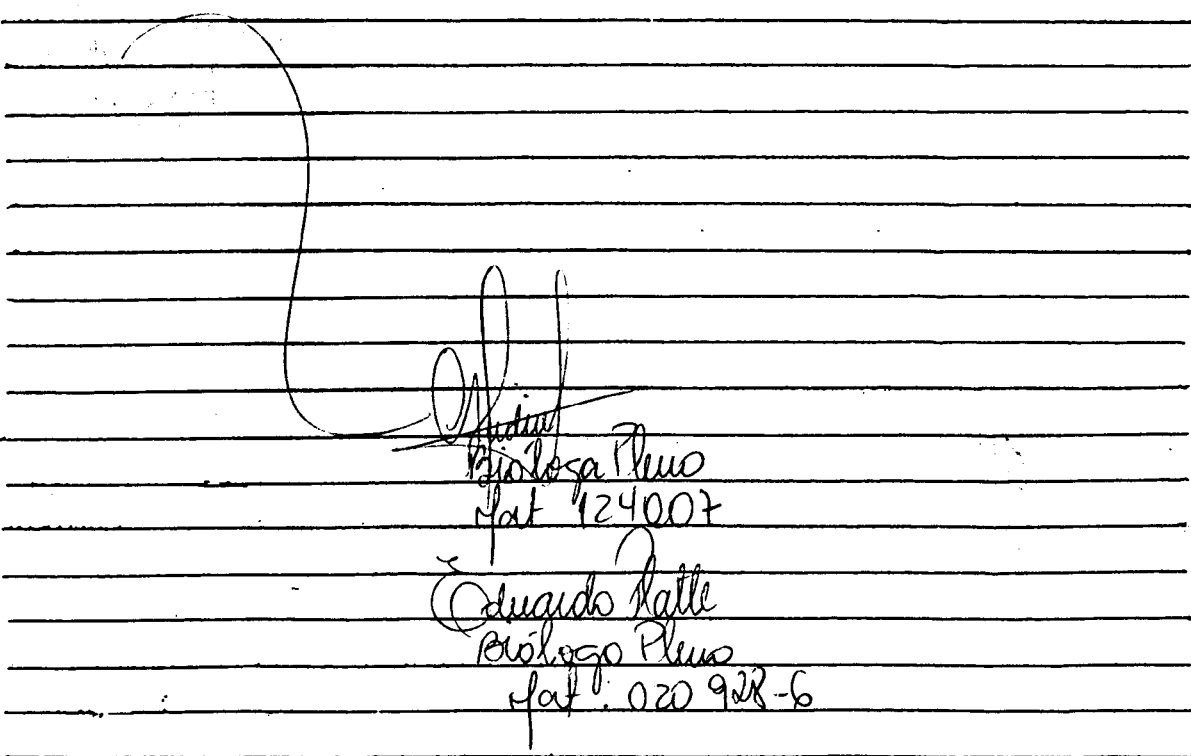 Bióloga Pleno
Mat 124007
Eduardo
Biólogo Pleno
Mat: 020 928-6